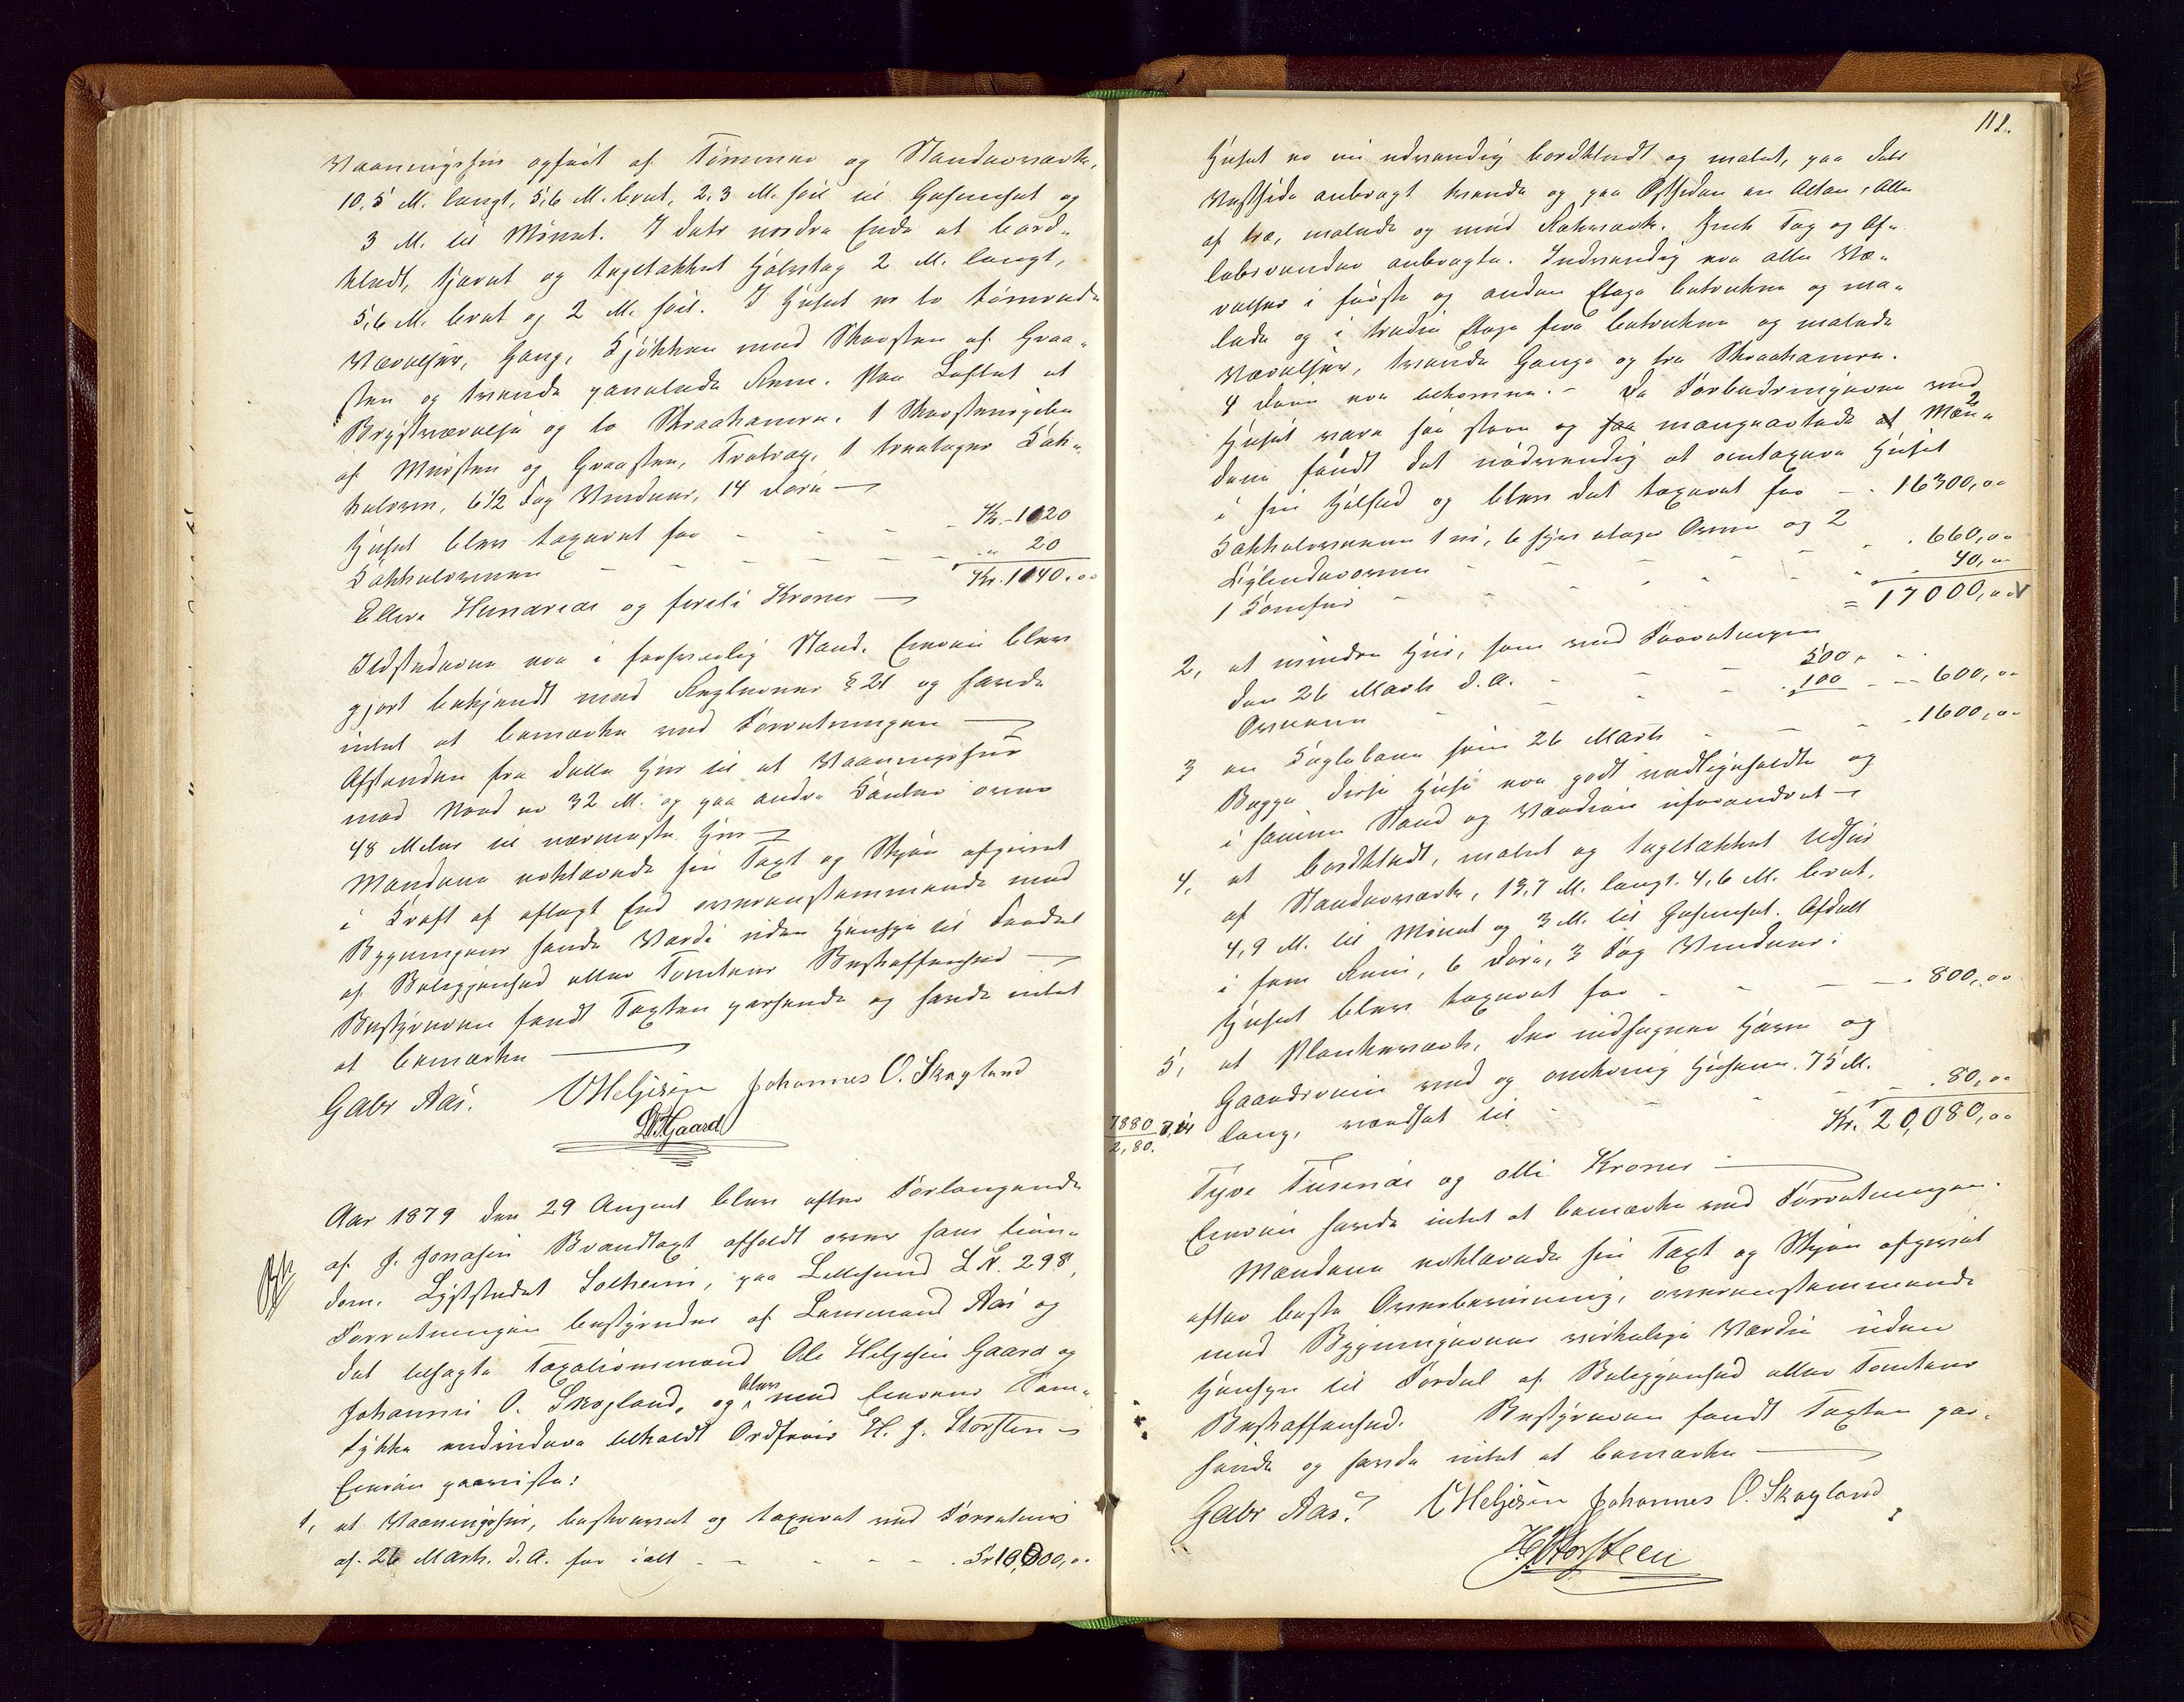 Vaaningshus opført af Tømmer og Standerværk,
10,5 M. langt, 5,6 M. bret, 2,3 M. høit til Gesimset og
3 M. til Mønet. I dets nordre Ende et bord-
klædt, tjæret og tagtækket Halvtag 2 M. langt,
5,6 M. bret og 2 M. høit. I Huset er to tømrede
Værelser, Gang, Kjøkken med Skorsten af Graa-
sten og tvende panelede Rum. Paa Loftet et
Brystværelse og to Skraakamre. 1 Skorstenspibe
af Mursten og Graasten, Tratrap, 1 treetages Kak-
kelovn, 6 1/2 Fag Vinduer, 14 Døre
Huset blev taxeret for - - - Kr. 1120
Kakkelovnen - - - " 20
Kr. 1140,00
Elleve Hundrede og fireti Kroner
Ildstederne var i forsvarlig Stand. Eieren blev
gjort bekjendt med Reglernes § 21 og havde
intet at bemærke ved Forretningen
Afstanden fra dette Hus til et Vaaningshus
mod Nord er 32 M. og paa andre Kanter over
48 Meter til nærmeste Hus
Mændene erklærede sin Taxt og Skjøn afgivet
i Kraft af aflagt Eed overensstemmende med
Bygningens sande Værdi uden Hensyn til Fordel
af Beliggenhed eller Tomtens Beskaffenhed
Bestyreren fandt Taxten passende og havde intet
at bemærke
Gabr Aas. O Helgesen Johannes O. Skogland
Gaard
Aar 1879 den 29 August blev efter Forlangende
af J. Jonasen Brandtaxt afholdt over hans Eien-
dom, Lyststedet Solheim, paa Lillesund L.N. 298,
Forretningen bestyredes af Lensmand Aas og
det tilsagte Taxationsmænd Ole Helgesen Gaard og
Johannes O. Skogland, og blev med Eierens Sam-
tykke endvidere tilkaldt Ordfører H. J. Storsten
Eieren paaviste:
1, et Vaaningshus, beskrevet og taxeret ved Forretning
af 26 Marts d. A. for ialt - - - Kr 10,000,00
111.
Huset er nu udvendig bordklædt og malet, paa dets
Vestside anbragt tvende og paa Østsiden en Altan, alle
af træ, malede og med Rækværk. Zink Tag og Af-
løbsrender anbragte. Indvendig var alle Væ-
relser i første og anden Etage betrukne og ma-
lede og i tredie Etage fire betrukne og malede
Værelser, tvende Gange og tre Skraakamre.
4 Døre var tilkomne. - Da Forbedringerne ved
Huset vare saa store og mangeartede at Mæn-
dene fandt det nødvendig at omtaxere Huset
i sin Helhed og blev det taxeret for - 16300,00
Kakkelovnene 1 ni, 6 fyr etages Ovne og 2
Cylinderovne - - - 660,00
1 - - - 40,00
= 17000,00
2, et mindre Hus, som ved Forretningen
den 26 Marts d. A. - - 500,
Ovnene - - 100 - - 600,00
3 en Keglebane som 26 Marts - - 1600,00
Begge disse Huse var godt vedligeholdte og
i samme Stand og Værdien uforandret
4, et bordklædt, malet og tagtækket Udhus
af Standerværk, 13,7 M. langt. 4,6 M. bret,
4,9 M. til Mønet og 3 M. til Gesimset. Afdelt
i fem Rum, 6 Døre, 3 Fag Vinduer.
Huset blev taxeret for - - - 800,00
5, et Plankeværk, der indhegner Have og
Gaardsrum ved og omkring Husene. 75 M.
lang, værdsat til - - - 80,00
Kr. 20,080,00
7880
2,80.
Tyve Tusinde og otti Kroner
Eieren havde intet at bemærke ved Forretningen.
Mændene erklærede sin Taxt og Skjøn afgivet
efter beste Overbevisning, overensstemmende
med Bygningernes virkelige Værdi uden
Hensyn til Fordel af Beliggenhed eller Tomtens
Beskaffenhed. Bestyreren fandt Taxten pas-
sende og havde intet at bemærke
Gabr Aas. O Helgesen Johannes O. Skogland
H J Storsteen